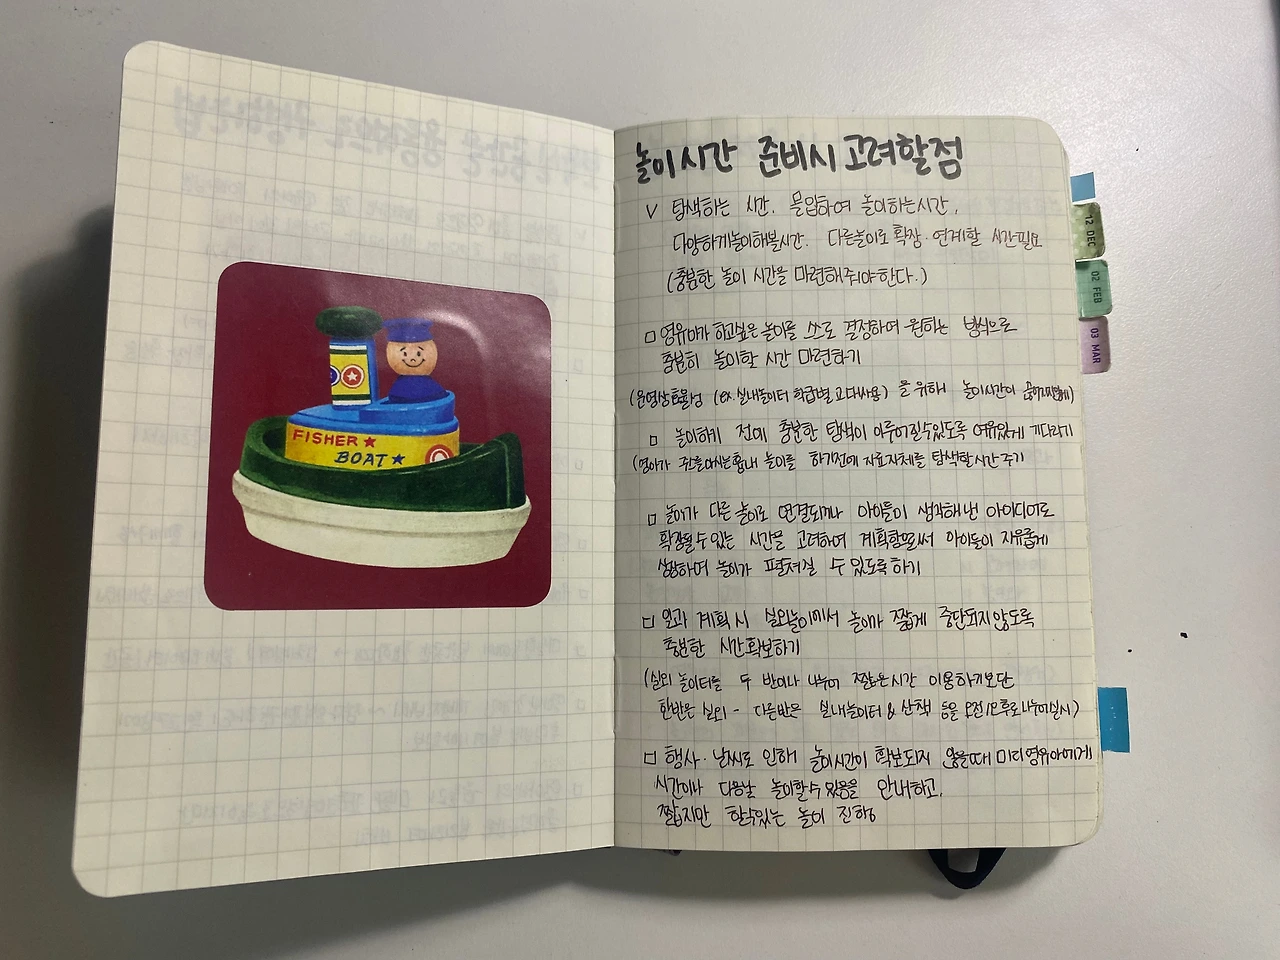 FISHER★
BOAT★
놀이시간 준비시 고려할점
V 탐색하는 시간, 몰입하여 놀이하는시간,
다양하게놀이해볼시간, 다른놀이로 확장·연계할 시간필요
(충분한 놀이 시간을 마련해줘야한다.)
□ 영유아가 하고싶은 놀이를 스스로 결정하여 원하는 방식으로
충분히 놀이할 시간 마련하기
(운영상효율성 (ex.실내놀이터 학급별 교대사용) 을 위해 놀이시간이
□ 놀이하기 전에 충분한 탐색이 이루어질수있도록 여유있게 기다리기
(영아가 놀이를 하기전에 자료자체를 탐색할시간 주기
□ 놀이가 다른 놀이로 연결되거나 아이들이 생각해낸 아이디어로
확장될수있는 시간을 고려하여 계획함으로써 아이들이 자유롭게
상상하여 놀이가 펼쳐질 수 있도록 하기
□ 일과 계획 시 실외놀이에서 놀이가 짧게 중단되지않도록
충분한 시간확보하기
(실외 놀이터를 두 반이나 나누어 짧은시간 이용하기보단
한반은 실외 - 다른반은 실내놀이터 & 산책 등을 오전/오후로나누어실시)
□ 행사·날씨로 인해 놀이시간이 확보되지 않을때 미리 영유아에게
시간이나 다음날 놀이할수있음을 안내하고,
짧지만 할수있는 놀이 진행
12 DEC
02 FEB
03 MAR